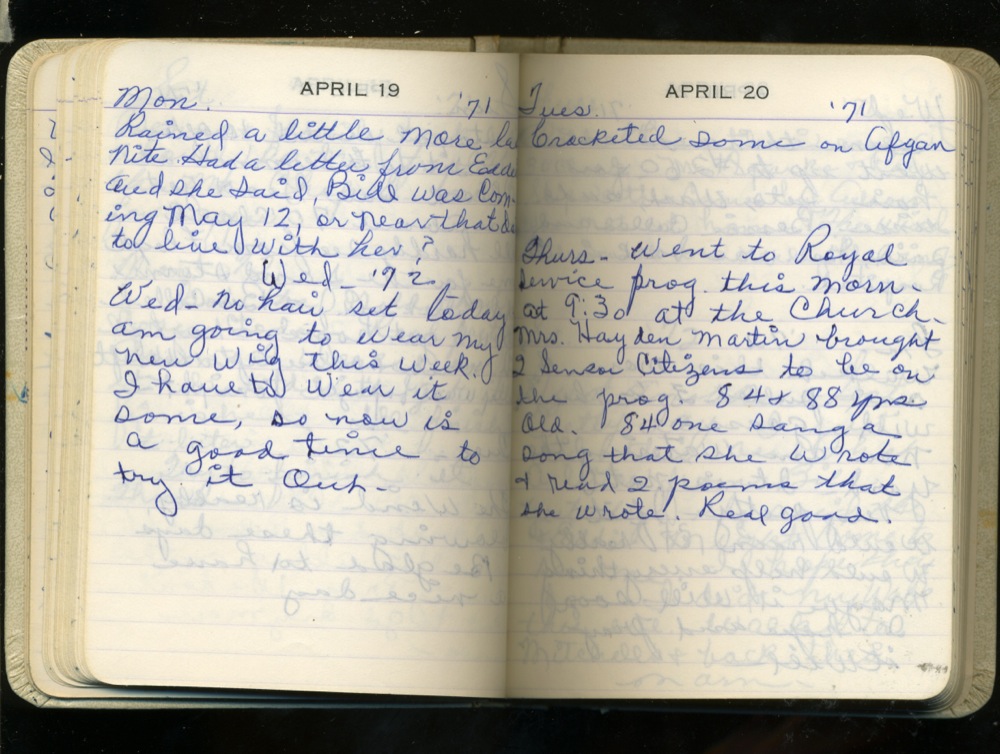 APRIL 19
Mon. '71
Rained a little more la
nite. Had a letter from
and she said, Bill was Com-
ing May 12, or near that da
to live with her?
Wed - '72
Wed - no hair set today
am going to wear my
new wig this week.
I have to wear it
some, so now is
a good time to
try it out -
APRIL 20
Tues. '71
Crocketed some on Afgan
Thurs - Went to Royal
Service prog. this morn -
at 9:30 at the Church -
Mrs. Hayden Martin brought
2 Senior Citizens to be on
the prog. 84 & 88 yrs.
old. 84 one sang a
song that she wrote
& read 2 poems that
she wrote. Real good.